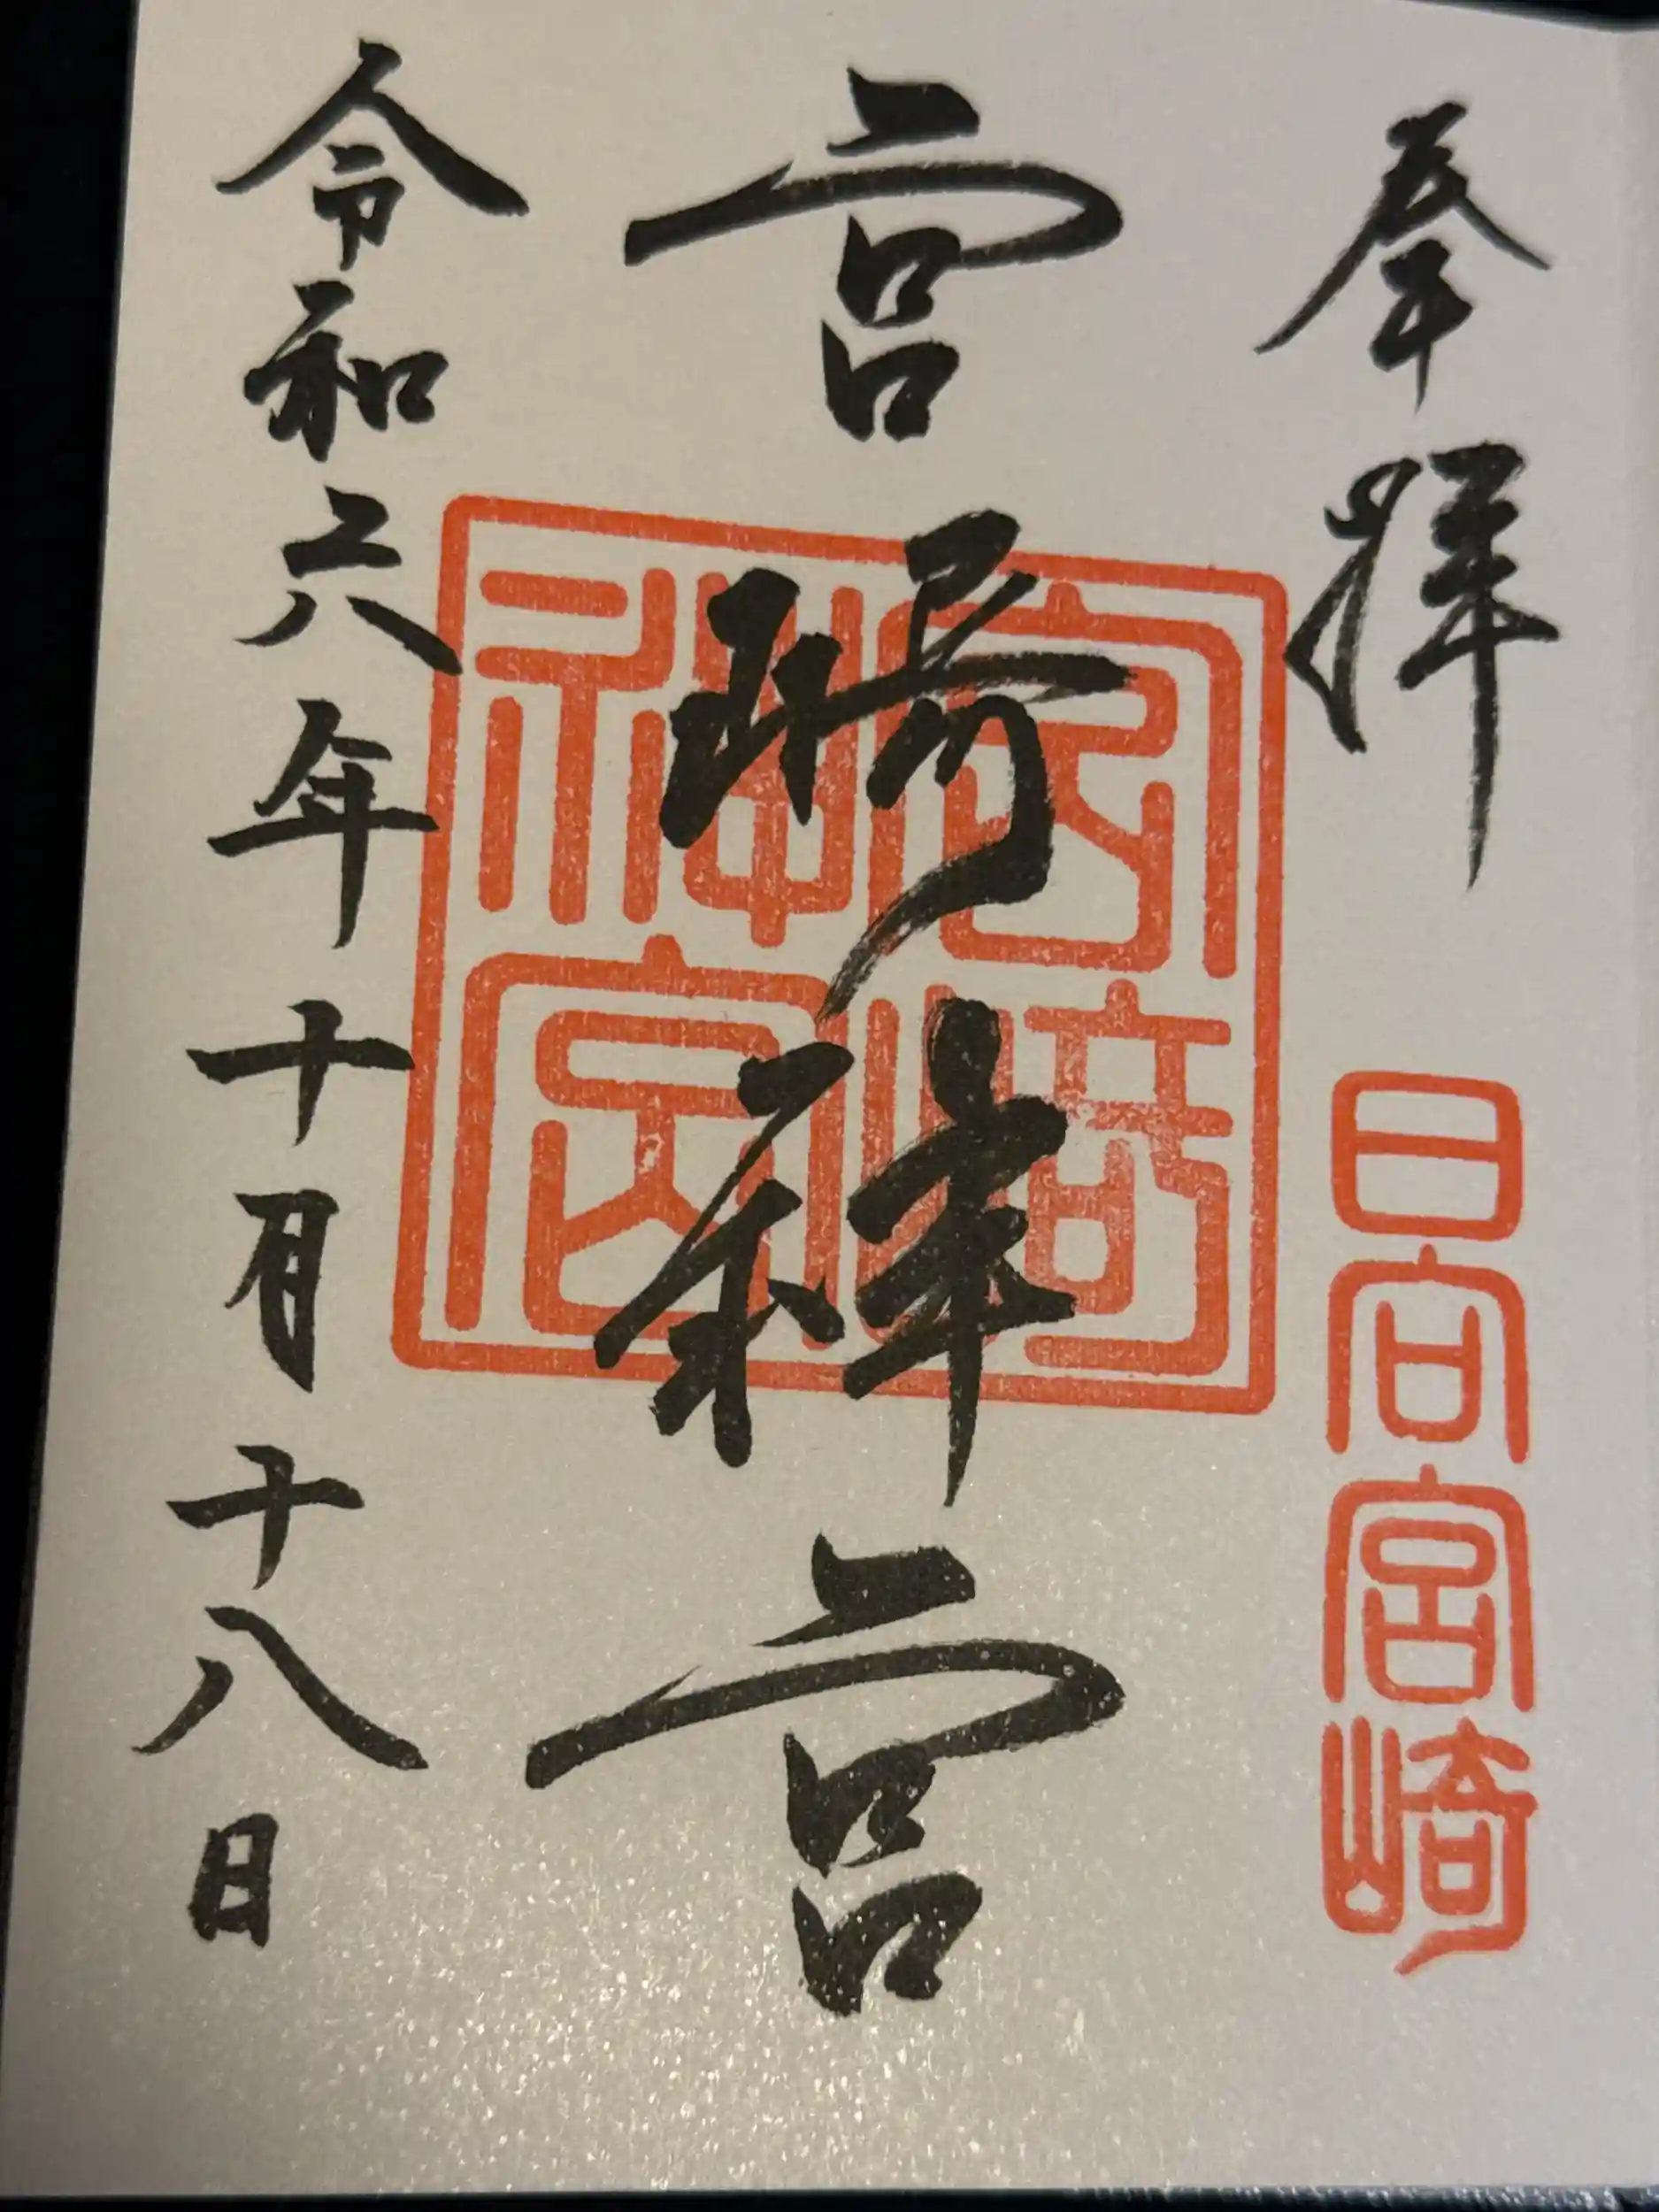 奉拝
日向宮崎
宮崎神宮
宮崎神宮
令和六年十月十八日